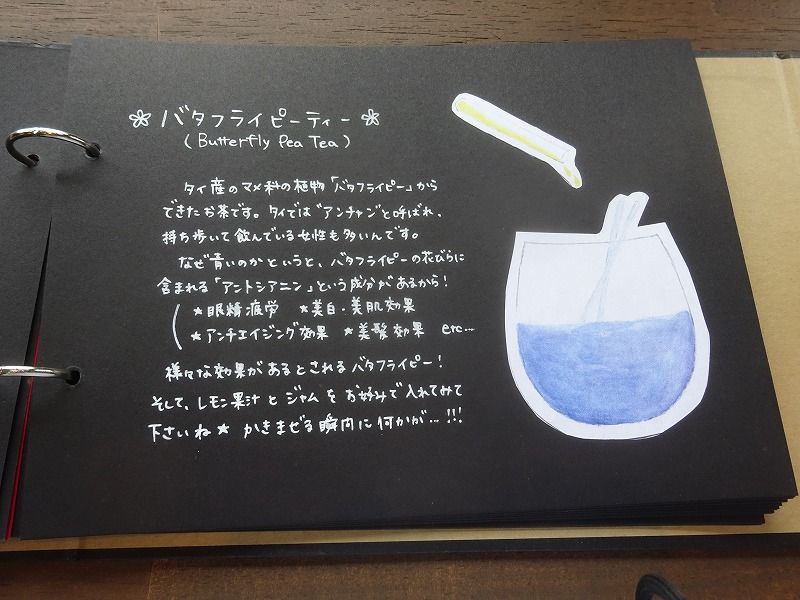 バタフライピーティー
(Butterfly Pea Tea)
タイ産のマメ科の植物「バタフライピー」から
できたお茶です。タイでは"アンチャン"と呼ばれ、
持ち歩いて飲んでいる女性も多いんです。
なぜ青いのかというと、バタフライピーの花びらに
含まれる「アントシアニン」という成分があるから!
★眼精疲労 ★美白・美肌効果
★アンチエイジング効果 ★美髪効果 etc...
様々な効果があるとされるバタフライピー!
そして、レモン果汁とジャムをお好みで入れてみて
下さいね★ かきまぜる瞬間に何かが…!!!